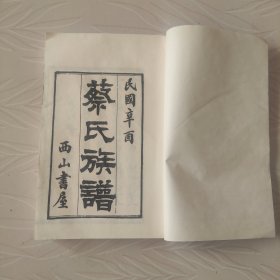 民國辛酉
蔡氏族譜
西山書屋